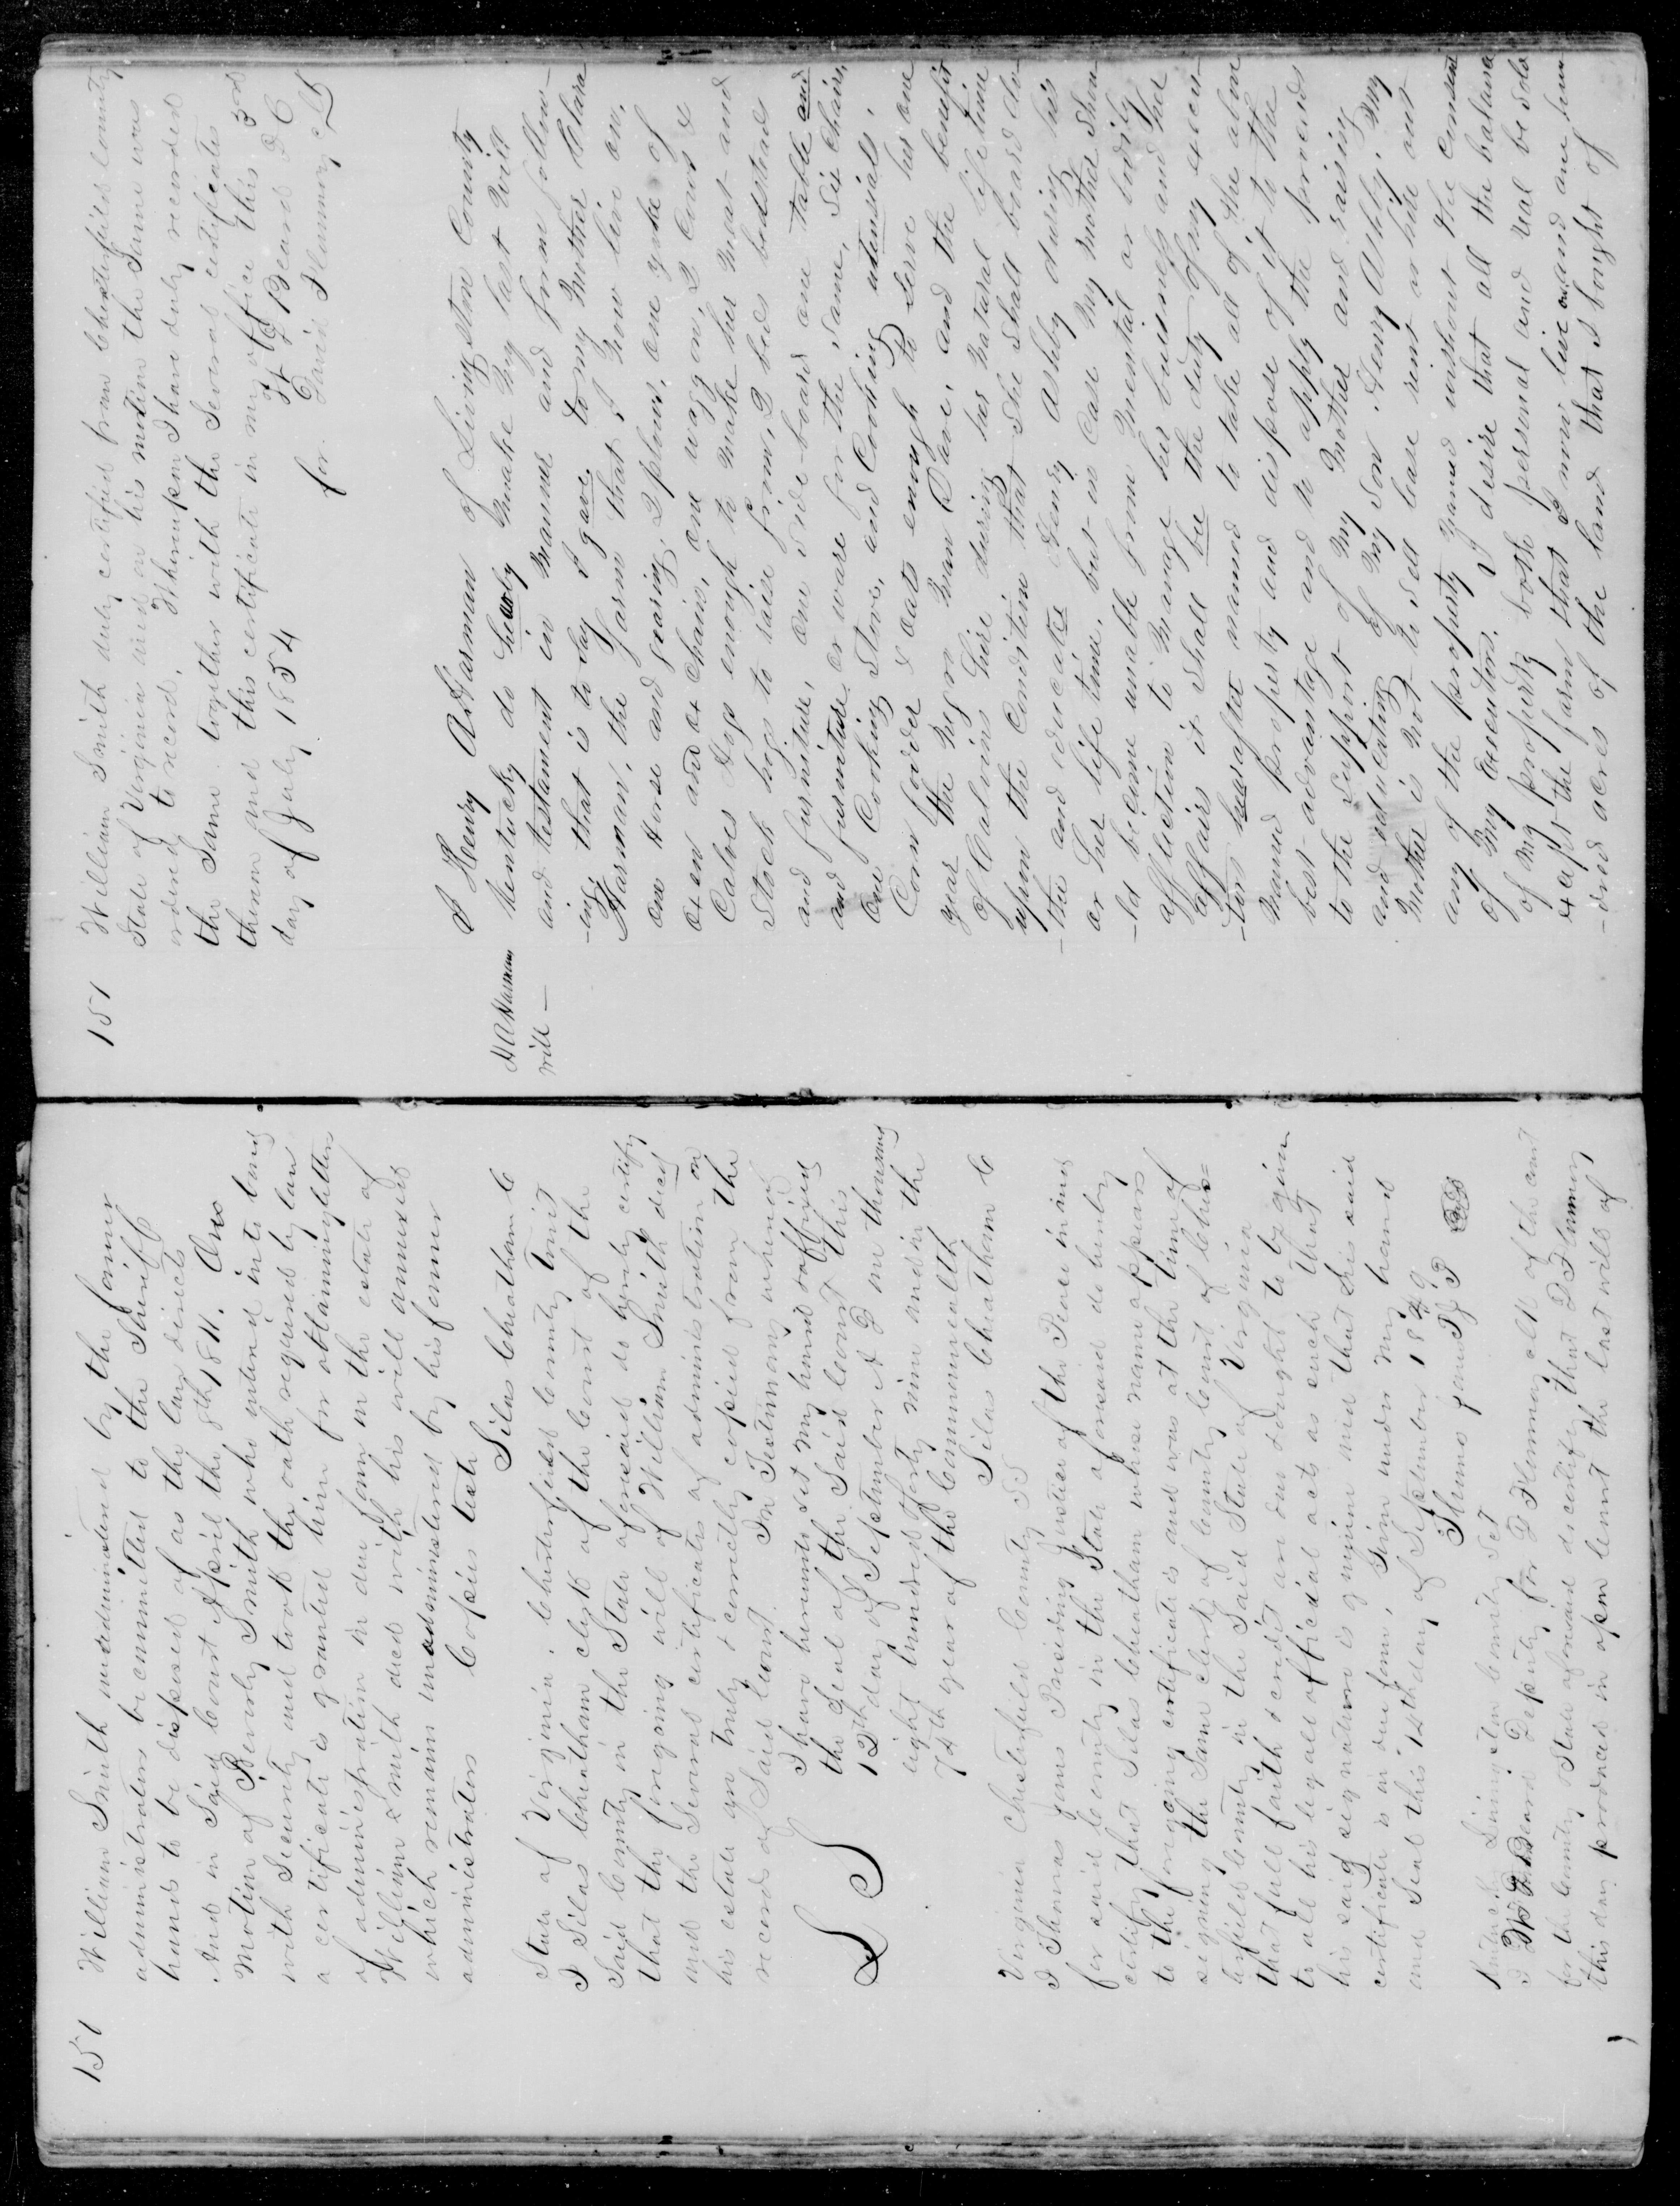 151
William Smith unadministered by the former
administrators be committed to the Sheriff
hands to be disposed of as the law directs
And in Said Court April the 8th 1811. On
Motion of Beverly Smith who entered into bond
with Security and took the oath required by law
a certificate is granted him for obtaining letters
of administration in due form on the estate of
William Smith decd with his will annexed
which remain unadministered by his former
administrators Copies teste Silas Cheatham C
State of Virginia, Chesterfield County Towit
I Silas Cheatham clerk of the Court of the
Said County in the State aforesaid do hereby certify
that the foregoing will of William Smith decd
and the Several certificates of administration on
his estate are truly & correctly copied from the
records of Said Court. In Testimony whereof
I have hereunto set my hand & affixed
the Seal of the Said Court this
12th day of September A D one thousand
eight hundred forty nine and in the
74th year of the Commonwealth
L S
Silas Cheatham C
Virginia Chesterfield County SS
I Thomas James Presiding Justice of the Peace in and
for said County in the State aforesaid do hereby
certify that Silas Cheatham whose name appears
to the foregoing certificate is and was at the time of
signing the Same clerk of County Court of Ches=
terfield County in the Said State of Virginia
that full faith & credit are and ought to be given
to all his legal official acts as such And that
his said signature is genuine and that his said
certificate is in due form, Given under my hand
and Seal this 14th day of September 1849
Thomas James J P Seal
Kentucky Livingston County Sct
I H F Beard Deputy for D Flemming clk of the court
for the County & State aforesaid do certify that D Flemming
this day produced in open Court the last will of
151
William Smith duly certified from Chesterfield County
State of Virginia and on his motion the Same was
ordered to record, Whereupon I have duly recorded
the Same together with the Several certificates
thereon and this certificate in my office this 3rd
day of July 1854 H F Beard D C
for David Flemming Clk
H A Harman
will —
I Henry A Harman of Livingston County
Kentucky do hereby make my last Will
and testament in manner and form follow-
-ing, that is to say I gave to my Mother Clara
Harman, the farm that I now live on,
one Horse and gearing, 2 plows, one yoke of
oxen and ox chains, one waggon, 2 Cows &
Calves Hogs enough to make her meat and
Stock hogs to raise from, 2 beds bedstead
and furniture, one side board one table and
and furniture or ware for the same, Six chairs,
one Cooking Stove, and Cooking utensials,
Corn fodder & oats enough to Serve her one
year the negro man Dave, and the benefit
of Calvins hire during her natural life time
upon the Condition that She Shall board clo-
-the and educate Henry Ashby during his
or her life time, but in Case my mother Shou-
-ld become unable from Mental or bodily
affliction to manage her business and her
affairs it Shall bee the duty of my execu-
-tors hereafter named to take all of the above
named property and dispose of it to the
best advantage and to apply the proceeds
to the Support of my Mother and raising
and educating of my Son Henry Ashby. My
Mother is not to sell lease rent or hire out
any of the property named without the consent
of my Executors. I desire that all the balance
of my property both personal and real be sold
except the farm that I now live on and one hun
-dred acres of the land that I bought of